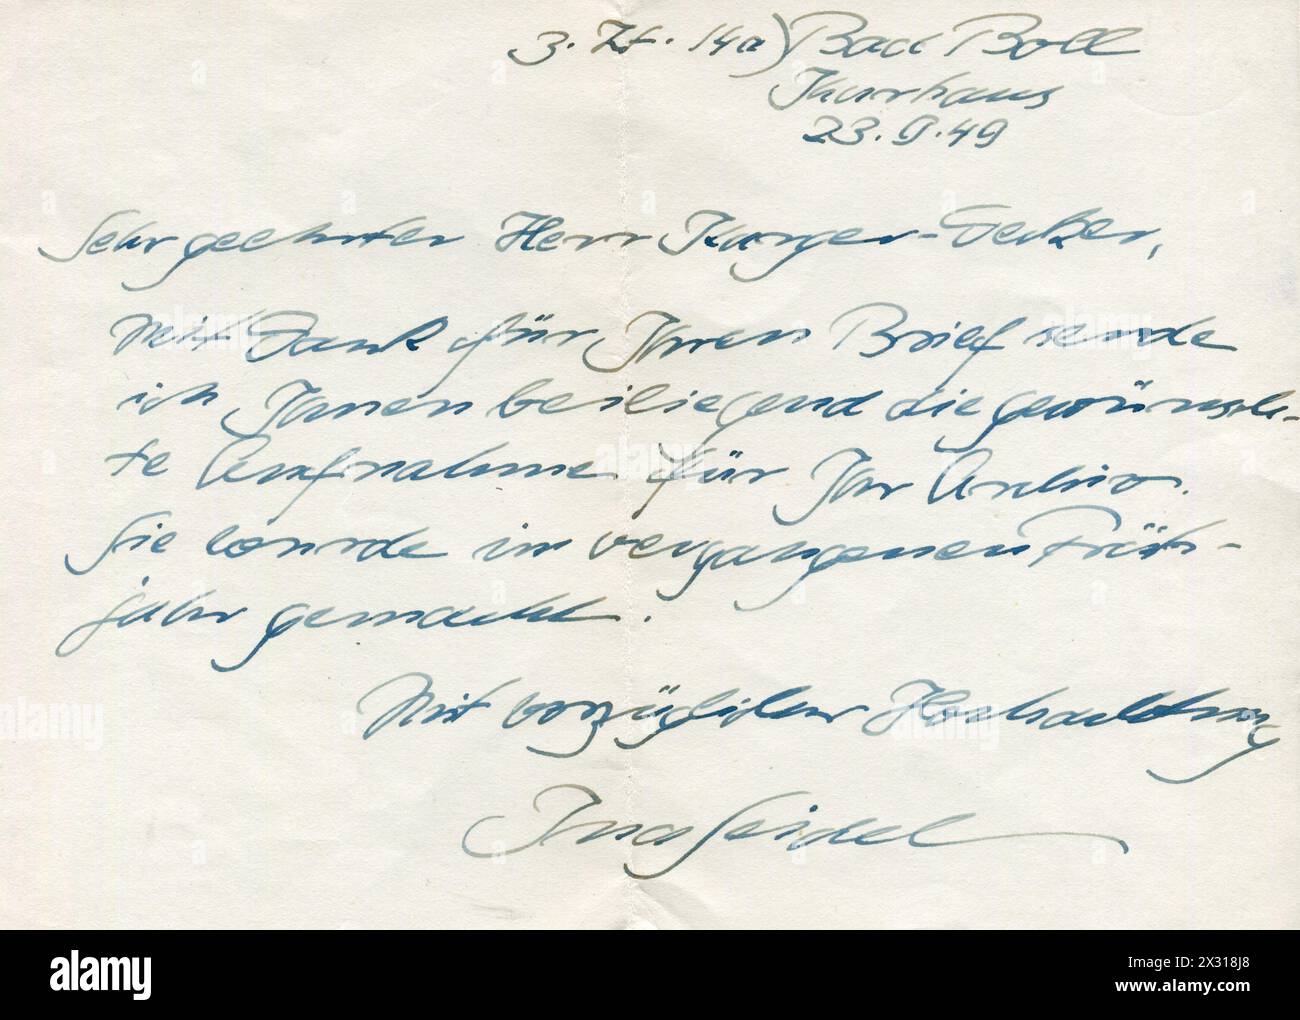 z. Zt. 14a) Bad Boll
Kurhaus
23.9.49
Sehr geehrter Herr Karger-Decker,
mit Dank für Ihren Brief sende
ich Ihnen beiliegend die gewünsch-
te Aufnahme für Ihr Archiv.
Sie wurde im vergangenen Früh-
jahr gemacht.
Mit vorzüglicher Hochachtung
Ina Seidel
alamy
Image ID: 2X318J8
www.alamy.com